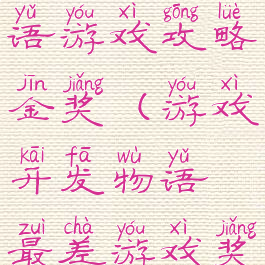 yǔ yóu xì gōng lüè
语游戏攻略
jīn jiǎng yóu xì
金奖（游戏
kāi fā wù yǔ
开发物语
zuì chà yóu xì jiǎng
最差游戏奖